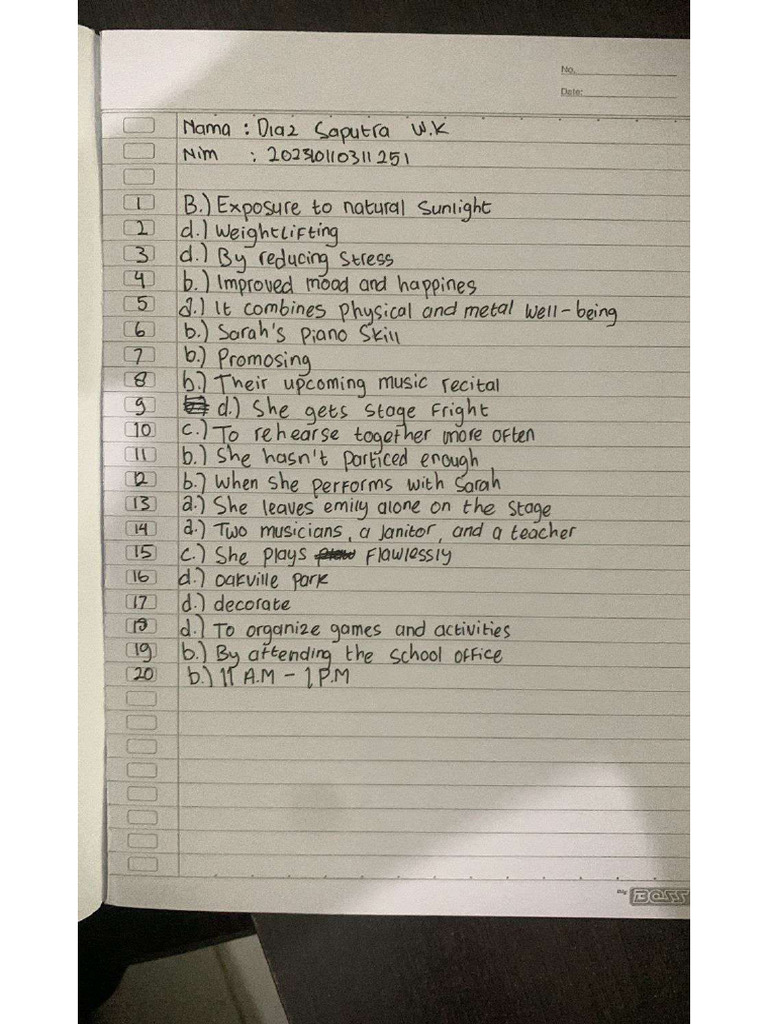 No.
Date:
Nama : Diaz Saputra W.K
Nim : 202310110311251
1 B.) Exposure to natural Sunlight
2 d.) Weightlifting
3 d.) By reducing Stress
4 b.) Improved mood and happines
5 a.) It combines physical and metal well-being
6 b.) Sarah's Piano Skill
7 b.) Promosing
8 b.) Their upcoming music recital
9 d.) She gets Stage Fright
10 c.) To rehearse together more often
11 b.) She hasn't particed enough
12 b.) When She performs with Sarah
13 a.) She leaves emily alone on the Stage
14 a.) Two musicians, a Janitor, and a teacher
15 c.) She Plays Flawlessly
16 d.) Oakville Park
17 d.) decorate
18 d.) To organize games and activities
19 b.) By attending the School office
20 b.) 11 A.M - 1 P.M
BOSS